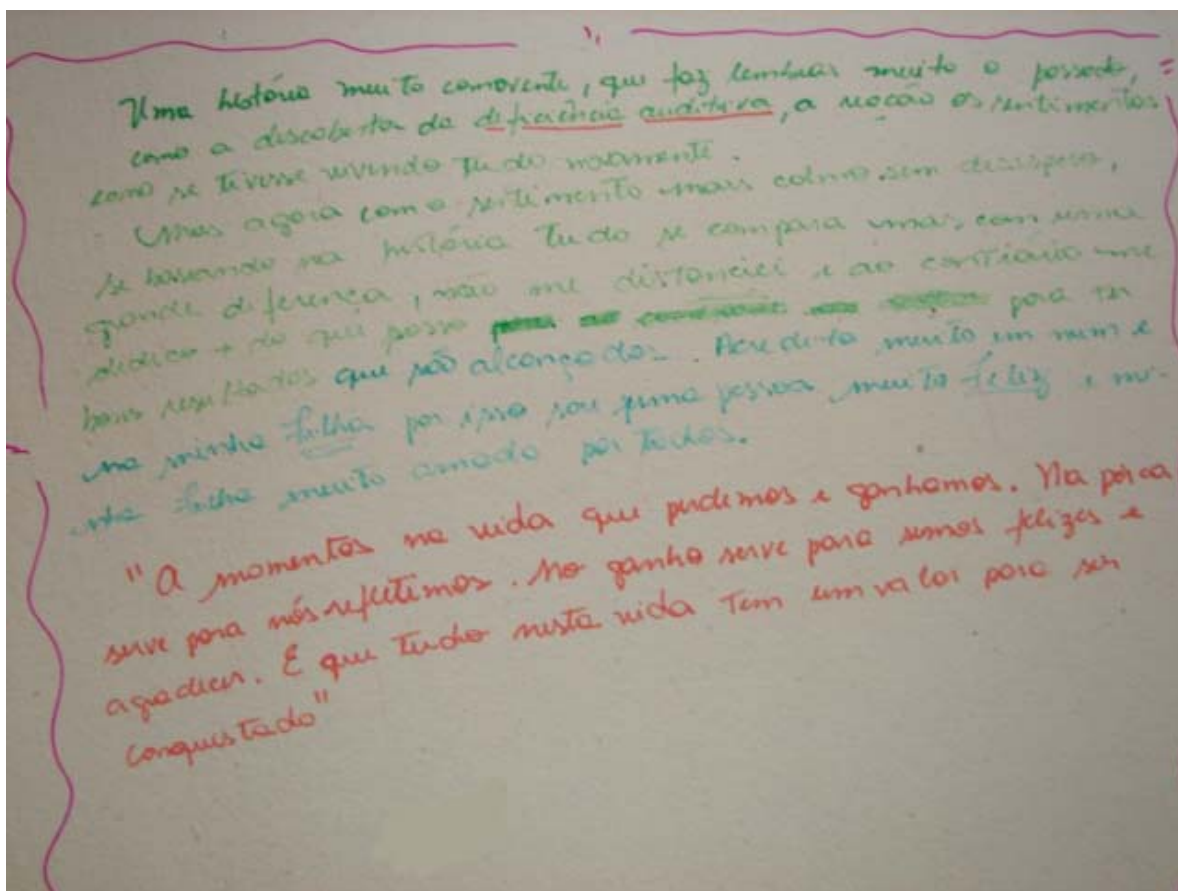 Uma história muito comovente, que faz lembrar muito o passado,
como a descoberta da deficiência auditiva, a reação os sentimentos
como se tivesse vivendo tudo novamente.
Mas agora com o sentimento mais calmo sem desespero,
se baseando na história tudo se compara mas com uma
grande diferença, não me distanciei e ao contrário me
dedico + do que posso para ter
bons resultados que são alcançados. Acredito muito em mim e
na minha filha por isso sou uma pessoa muito feliz e mi-
nha filha muito amada por todos.
"A momentos na vida que perdemos e ganhamos. Na perca
serve para nós refletimos. No ganho serve para sermos felizes e
agradecer. E que tudo nesta vida tem um valor para ser
conquistado"